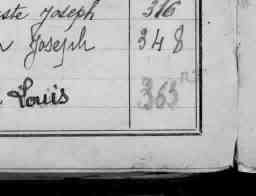 ste Joseph 316
Joseph 348
Louis 363